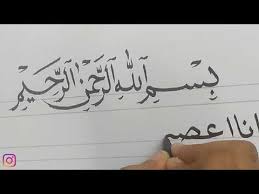 بِسْمِ اللهِ الرَّحْمٰنِ الرَّحِيْمِ
انا